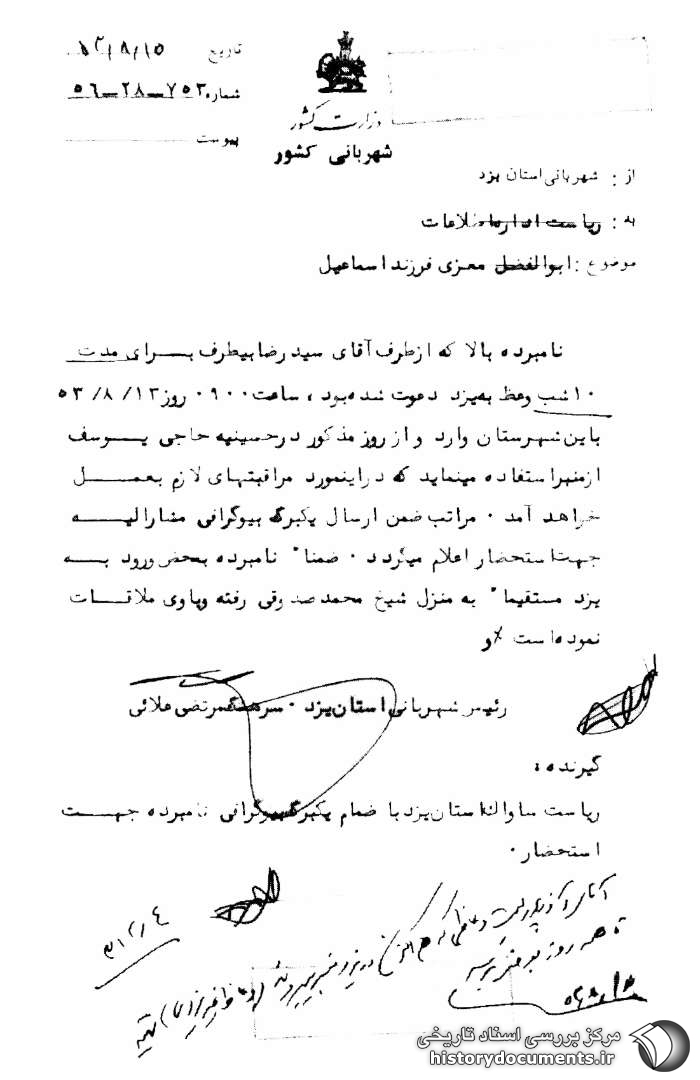 تاریخ ۵۳/۸/۱۵
شماره ۷۵۳-۲۸-۵۶
پیوست
وزارت کشور
شهربانی کشور
از : شهربانی استان یزد
به : ریاست اداره اطلاعات
موضوع : ابوالفضل معزی فرزند اسماعیل
نامبرده بالا که ازطرف آقای سید رضا بیطرف بـرای مدت
۱۰ شب وعظ به یزد دعوت شده بود ، ساعت ۰۹۰۰ روز ۵۳/۸/۱۳
باین شهرستان وارد و از روز مذکور درحسینیه حاجی یـوسف
ازمنبر استفاده مینماید که در اینمورد مراقبتهای لازم بعمـل
خواهد آمد ۰ مراتب ضمن ارسال یکبرگ بیوگرافی مشارالیـه
جهت استحضار اعلام میگردد ۰ ضمنا" نامبرده بمحض ورود بـه
یزد مستقیما" به منزل شیخ محمد صدوقی رفته وباوی ملاقـات
نموده است
رئیس شهربانی استان یزد ۰ سرهنگ مرتضی علائی
گیرنده :
ریاست ساواک استان یزد با ضمام یکبرگ بیوگرافی نامبرده جهـت
استحضار ۰
مرکز بررسی اسناد تاریخی
historydocuments.ir